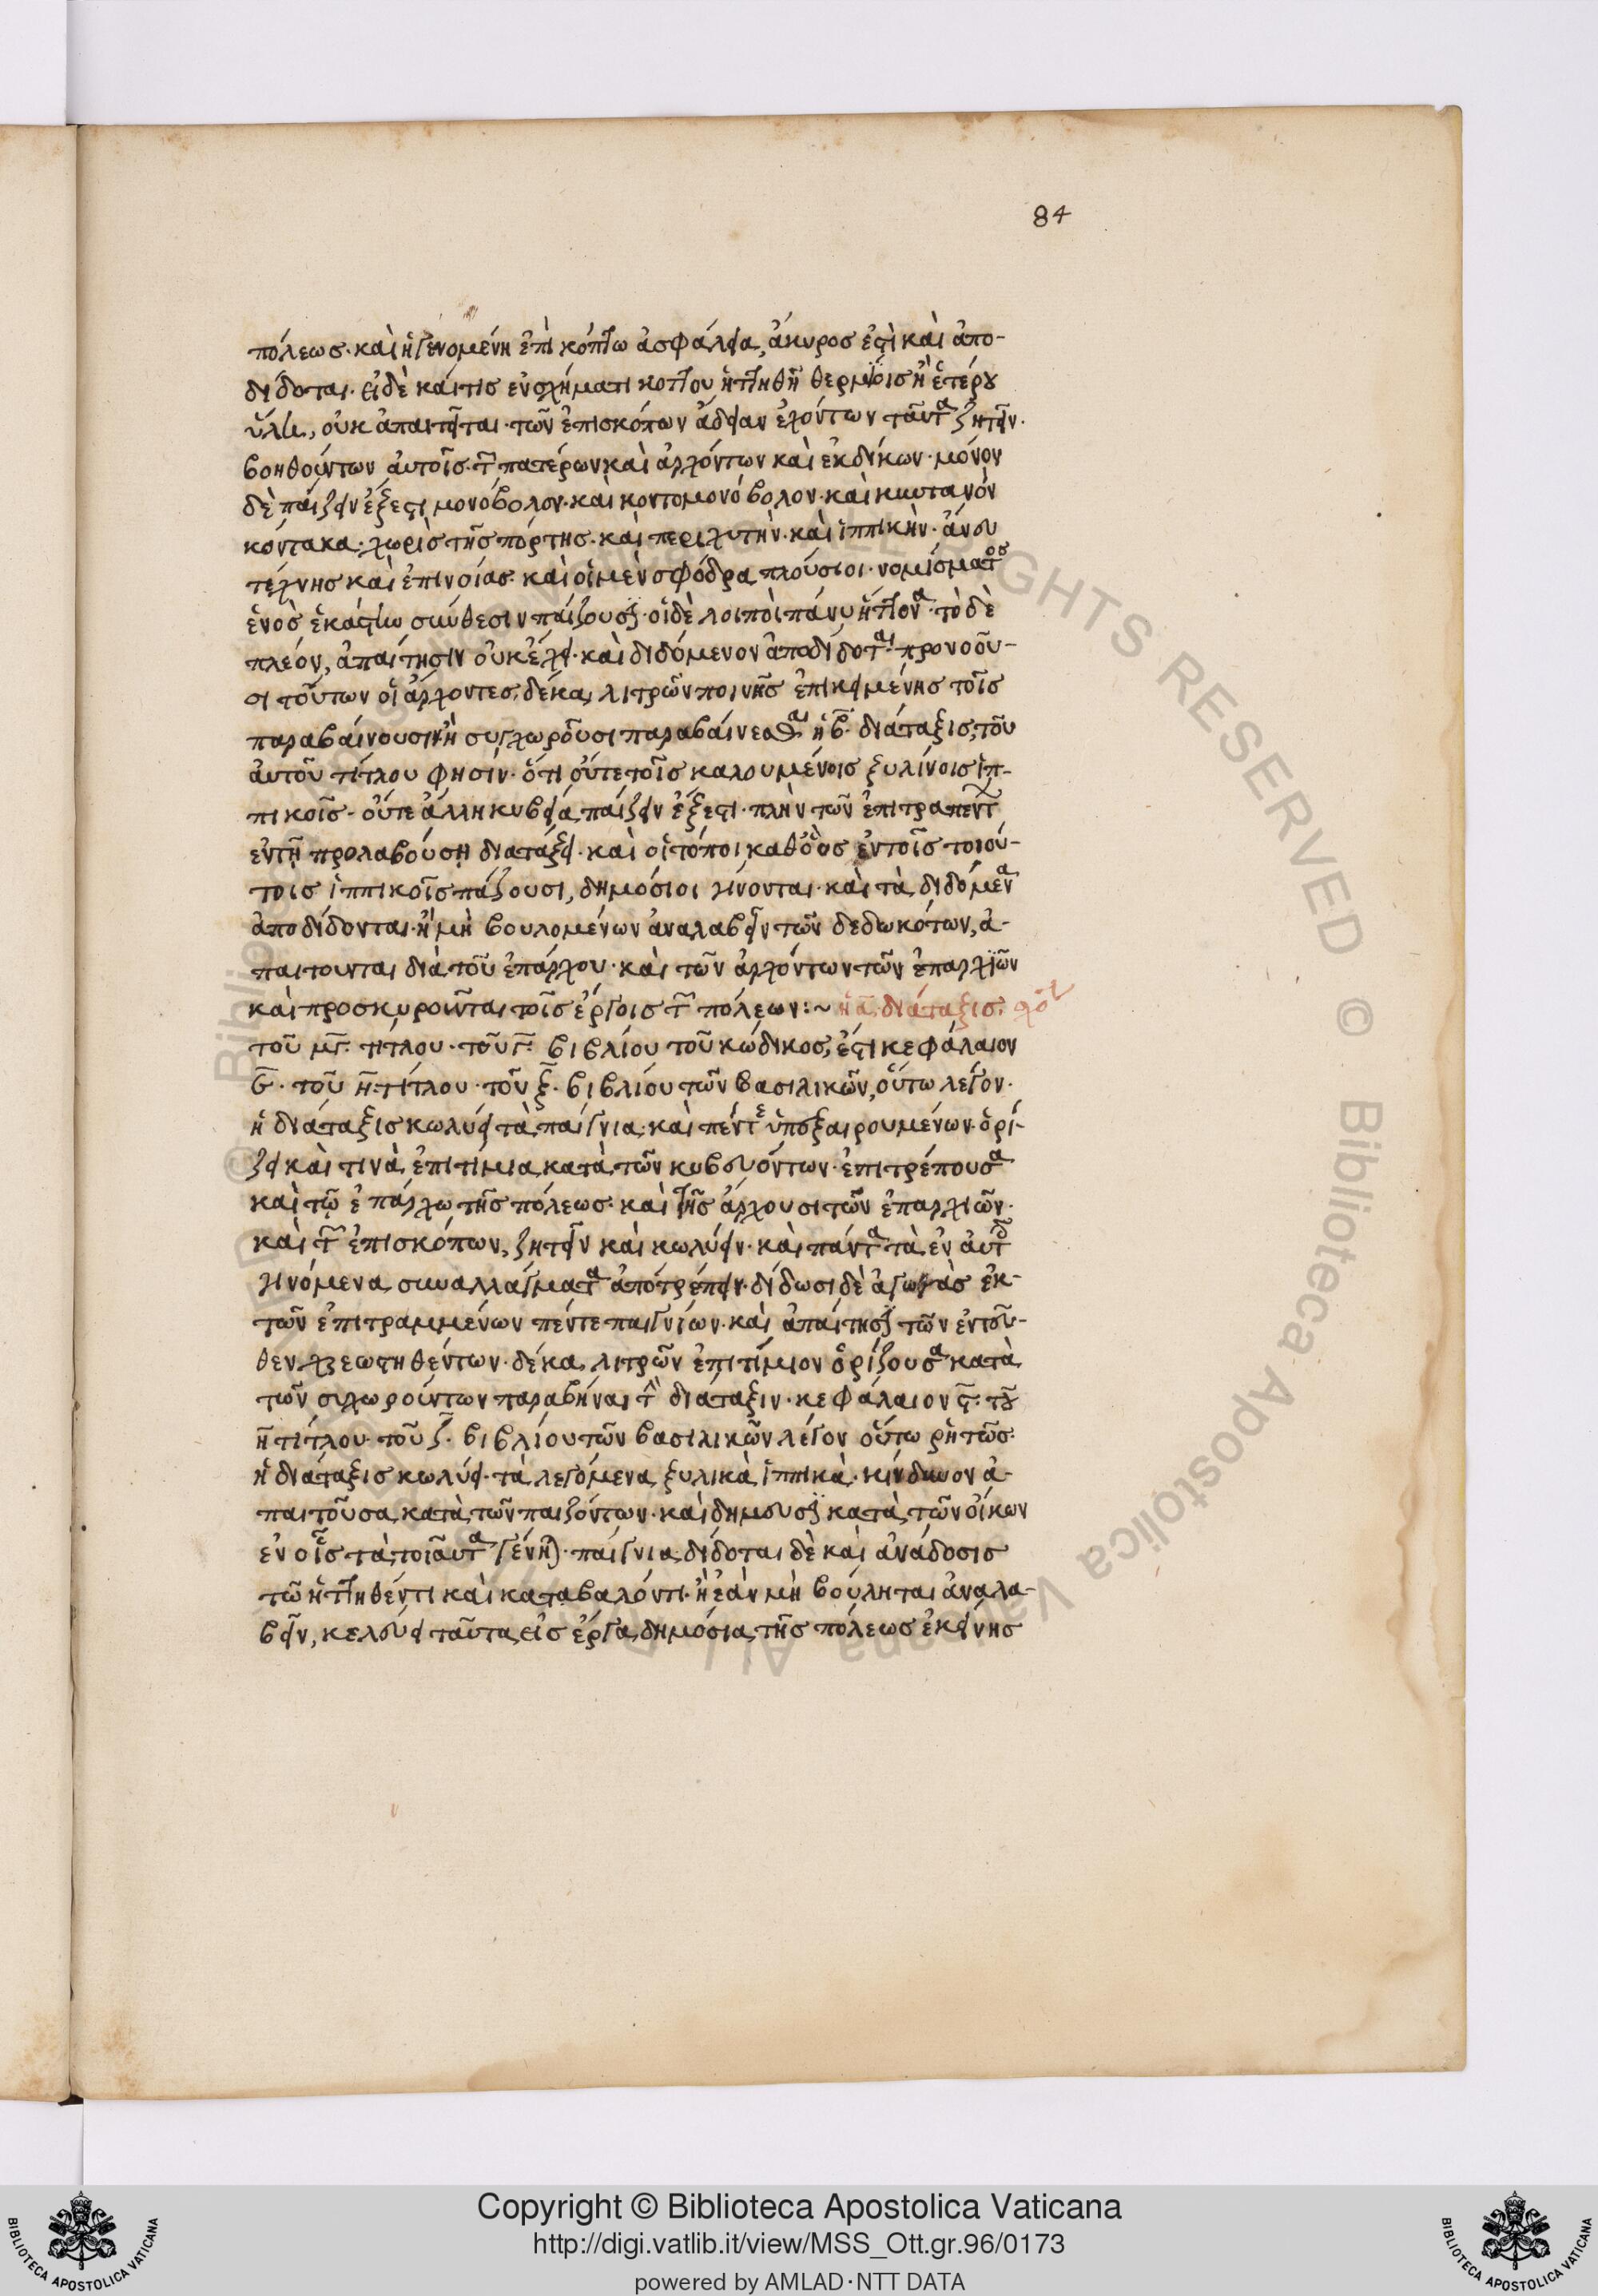 84
πόλεως· καὶ ἡ γενομένη ἐπὶ κόττω ἀσφάλεια, ἄκυρος ἐστὶ καὶ ἀπο-
δίδοται. εἰ δὲ καί τις ἐν σχήματι κόττου ἡττηθῆ θερμίοις ἢ ἑτέρου
ὕλη, οὐκ ἀπαιτεῖται. τῶν ἐπισκόπων ἄδειαν ἐχόντων ταῦτα ζητεῖν.
βοηθούντων αὐτοῖς. τ πατέρων καὶ ἀρχόντων καὶ ἐκδίκων. μόνον
δὲ παίζειν ἔξεστι μονόβολον. καὶ κοντομονόβολον. καὶ κυντανὸν
κόντακα. χωρὶς τῆς πόρτης. καὶ περιχυτὴν. καὶ ἱππικὴν. ἄνευ
τέχνης καὶ ἐπινοίας. καὶ οἱ μὲν σφόδρα πλούσιοι. νομίσματος
ἑνὸς ἑκάστην σύνθεσιν παίζουσι. οἱ δὲ λοιποὶ πάνυ ἥττονα. τὸ δὲ
πλέον, ἀπαίτησιν οὐκ ἔχει. καὶ διδόμενον ἀποδίδοται. προνοοῦ-
σι τούτων οἱ ἄρχοντες, δέκα λιτρῶν ποινῆς ἐπικειμένης τοῖς
παραβαίνουσιν ἢ συγχωροῦσι παραβαίνεσθαι ἡ β. διάταξις, τοῦ
αὐτοῦ τίτλου φησίν. ὅτι οὔτε τοῖς καλουμένοις ξυλίνοις ἱπ-
πικοῖς. οὔτε ἄλλη κυβεία παίζειν ἔξεστι. πλὴν τῶν ἐπιτραπέντ
ἐν τῆ προλαβούση διατάξει. καὶ οἱ τόποι καθ' οὓς ἐν τοῖς τοιού-
τοις ἱππικοῖς παίζουσι, δημόσιοι γίνονται. καὶ τὰ διδόμενα
ἀποδίδονται. ἢ μὴ βουλομένων ἀναλαβεῖν τῶν δεδωκότων, ἀ-
παιτουνται διὰ τοῦ ἐπάρχου. καὶ τῶν ἀρχόντων τῶν ἐπαρχιῶν
καὶ προσκυροῦνται τοῖς ἔργοις τ πόλεων:~ ἡ α διάταξις.
τοῦ μγ. τίτλου. τοῦ γ. βιβλίου τοῦ κώδικος, ἔστι κεφάλαιον
ϛ. τοῦ η. τίτλου. τοῦ ξ. βιβλίου τῶν βασιλικῶν, οὕτω λέγον.
ἡ διάταξις κωλύει τὰ παίγνια. καὶ πέντε ὑπεξαιρουμένων. ὁρί-
ζει καὶ τινὰ ἐπιτίμια κατὰ τῶν κυβευόντων. ἐπιτρέπουσα
καὶ τῷ ἐπάρχω τῆς πόλεως. καὶ τῆς ἄρχουσι τῶν ἐπαρχιῶν.
καὶ τ ἐπισκόπων, ζητεῖν καὶ κωλύειν. καὶ πάντα τὰ ἐν αὐτ
γινόμενα συναλλάγματα ἀποτρέπειν. δίδωσι δὲ ἀγωγὰς ἐκ-
τῶν ἐπιτραμμένων πέντε παιγνίων. καὶ ἀπαίτησι τῶν ἐντεῦ-
θεν χρεωστηθέντων. δέκα λιτρῶν ἐπιτίμιον ὁρίζουσα κατὰ
τῶν συγχωρούντων παραβῆναι τ διάταξιν. κεφάλαιον ϛ. τοῦ
η τίτλου. τοῦ ξ. βιβλίου τῶν βασιλικῶν λέγον οὕτω ῥητῶς.
ἡ διάταξις κωλύει. τὰ λεγόμενα ξυλικὰ ἱππικὰ. κίνδυνον ἀ-
παιτοῦσα κατὰ τῶν παιζόντων. καὶ δημευσι κατὰ τῶν οἴκων
ἐν οἷς τὰ τοιαῦτα γένηται. παίγνια. δίδοται δὲ καὶ ἀνάδοσις
τῶ ἡττηθέντι καὶ καταβαλόντι. ἢ ἐὰν μὴ βούληται ἀναλα-
βεῖν, κελεύει ταῦτα εἰς ἔργα δημόσια τῆς πόλεως ἐκείνης
© Biblioteca Apostolica Vaticana ALL RIGHTS RESERVED
Copyright © Biblioteca Apostolica Vaticana
http://digi.vatlib.it/view/MSS_Ott.gr.96/0173
powered by AMLAD·NTT DATA
BIBLIOTECA APOSTOLICA VATICANA
BIBLIOTECA APOSTOLICA VATICANA